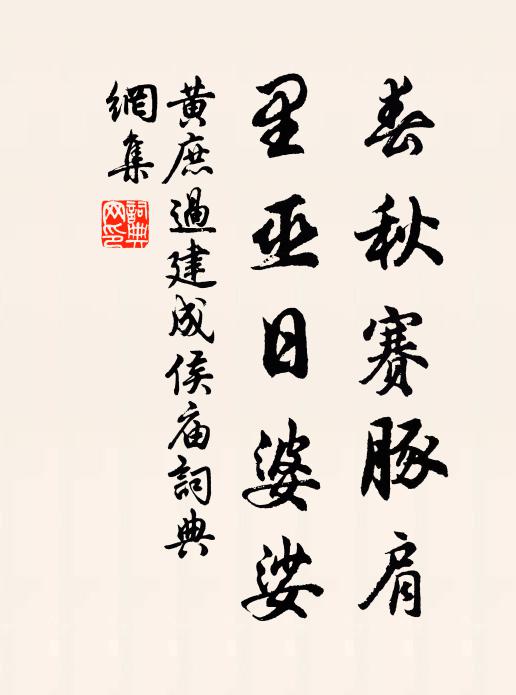 春秋賽豚肩
里巫日婆娑
黃庶過建成侯庙詞典
網集
詞典網印